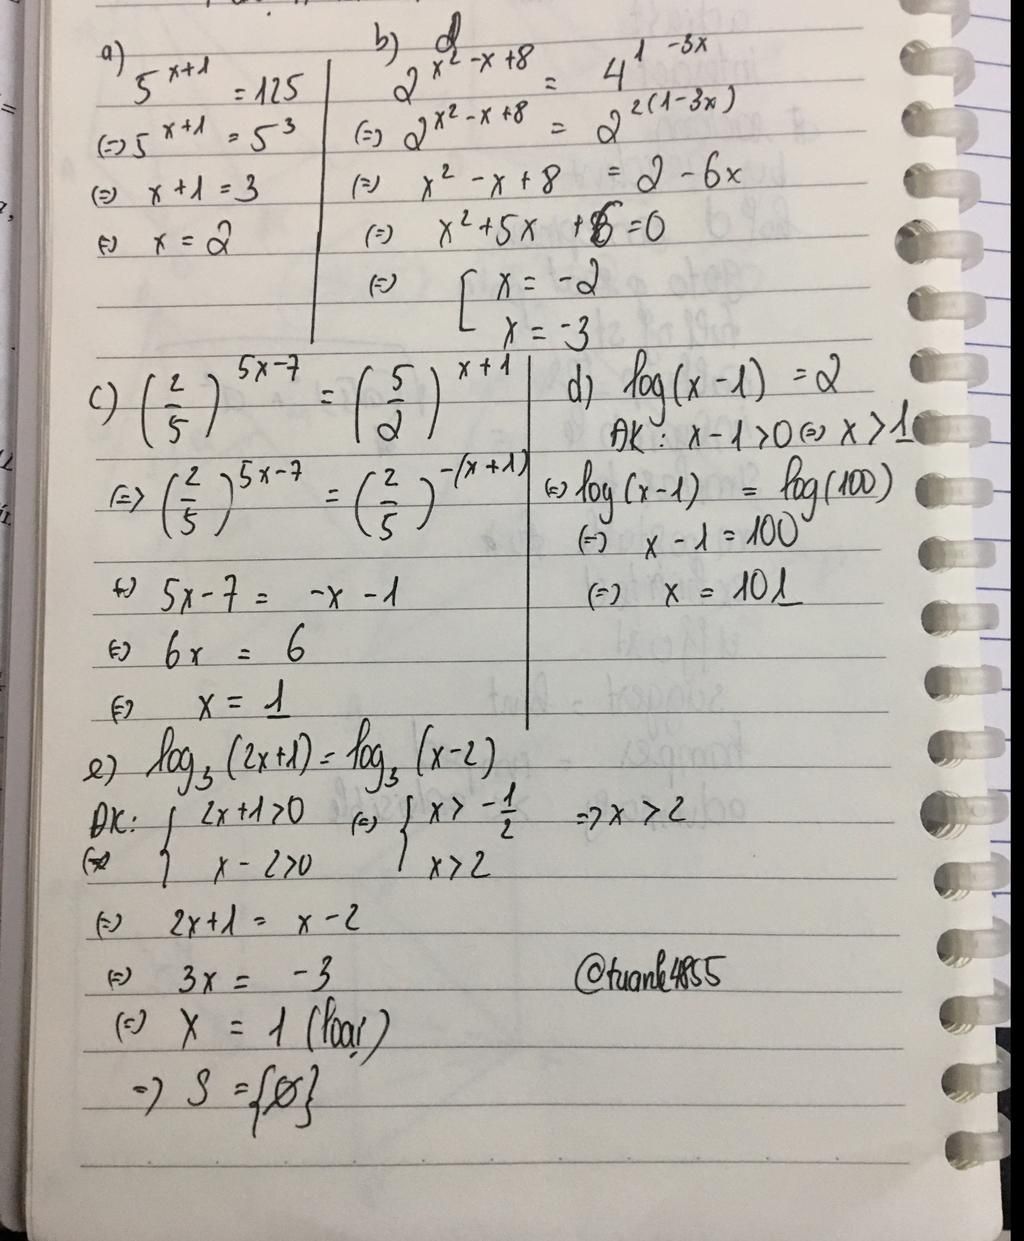 a)
5^{x+1} = 125
(=) 5^{x+1} = 5^3
(=) x+1 = 3
(=) x = 2
b)
2^{x^2-x+8} = 4^{1-3x}
(=) 2^{x^2-x+8} = 2^{2(1-3x)}
(=) x^2 - x + 8 = 2 - 6x
(=) x^2 + 5x + 6 = 0
(=) [ x = -2
x = -3
c) (2/5)^{5x-7} = (5/2)^{x+1}
(=) (2/5)^{5x-7} = (2/5)^{-(x+1)}
(=) 5x-7 = -x-1
(=) 6x = 6
(=) x = 1
d) log(x-1) = 2
ĐK: x-1>0 (=) x>1
(=) log(x-1) = log(100)
(=) x-1 = 100
(=) x = 101
e) log_3(2x+1) = log_3(x-2)
ĐK: { 2x+1>0 (=) { x > -1/2 => x>2
x-2>0 x>2
(=) 2x+1 = x-2
(=) 3x = -3
(=) x = 1 (loại)
=) S = {∅}
@tuank4855